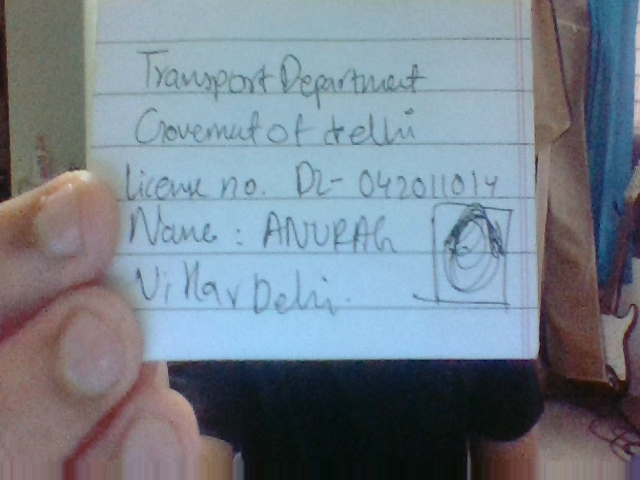 Transport Department
Government of delhi
License no. DL- 042011014
Name : ANURAG
Delhi.